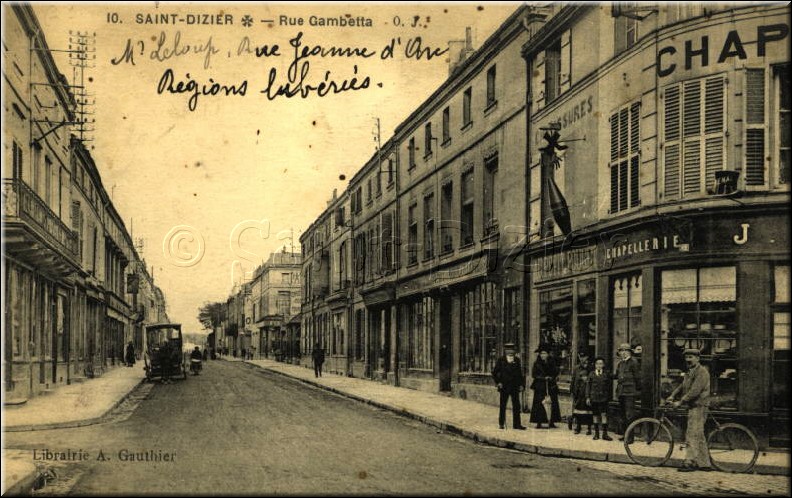 10. SAINT-DIZIER * — Rue Gambetta O. J.
Mr Leloup, Rue Jeanne d'Arc
Régions libérées.
CHAP
SSURES
CHAPELLERIE
J
© Saint-Dizier
Librairie A. Gauthier